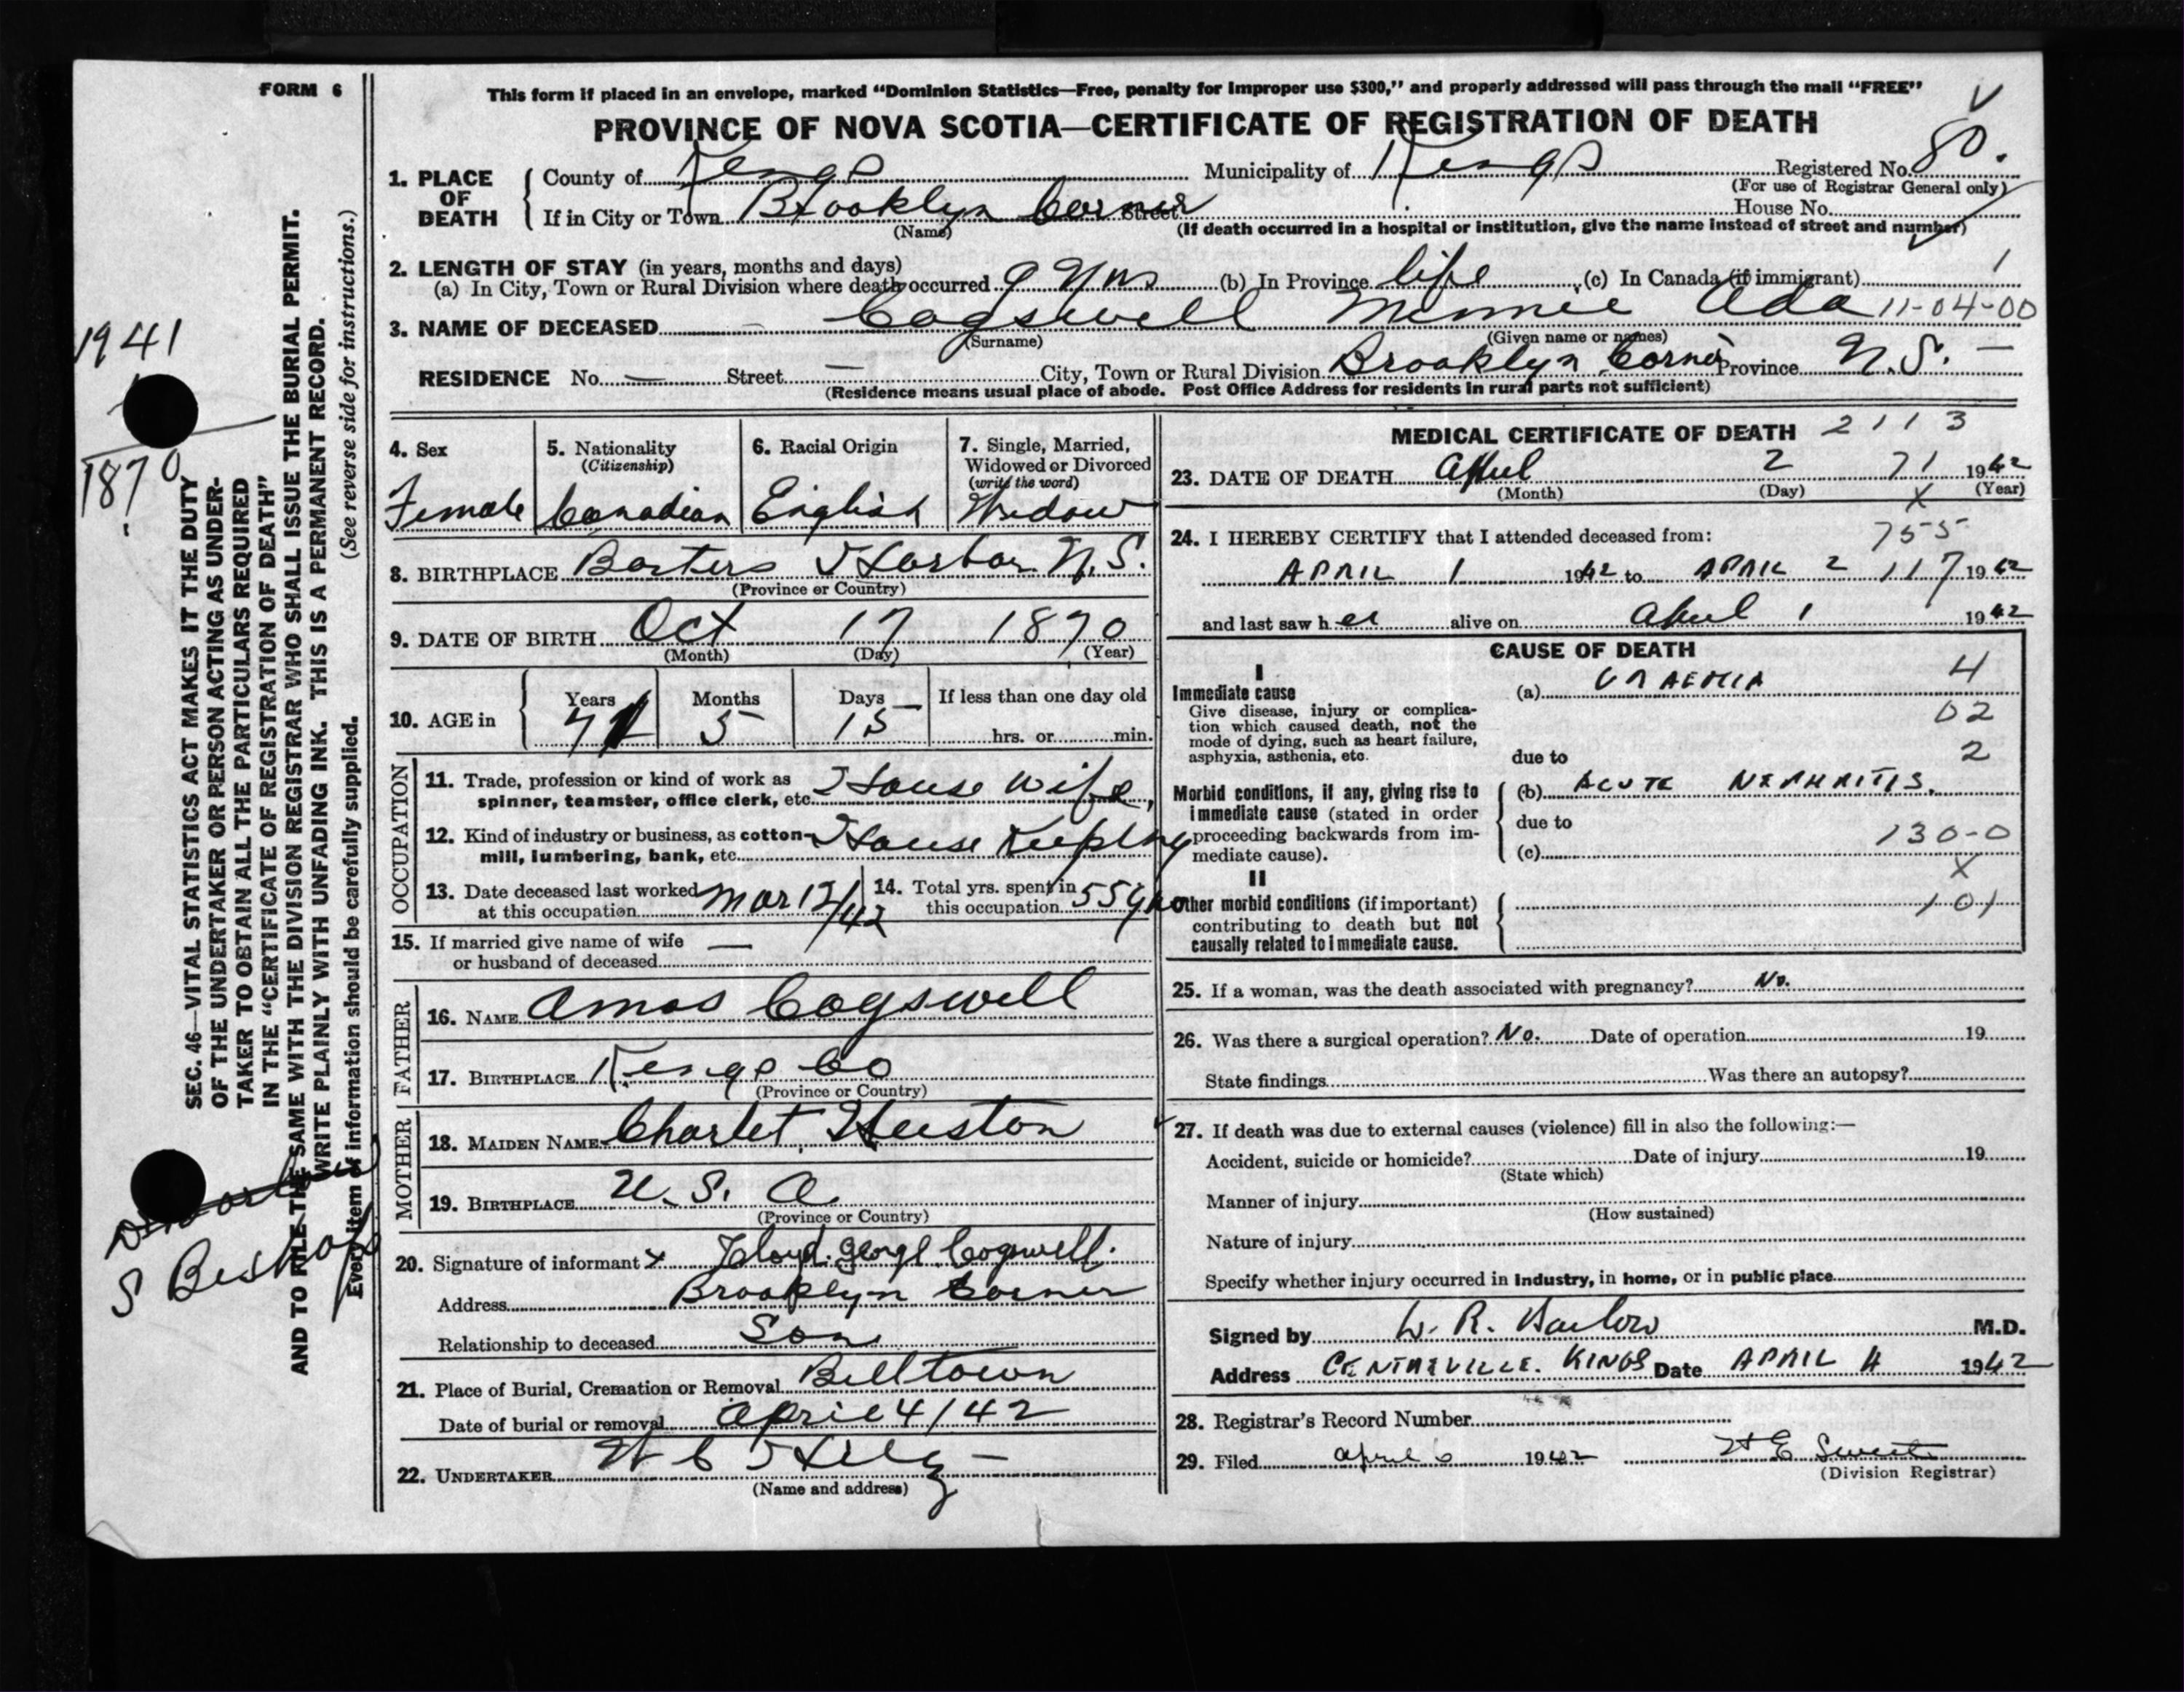 FORM 6
This form if placed in an envelope, marked “Dominion Statistics—Free, penalty for improper use $300,” and properly addressed will pass through the mail “FREE”
PROVINCE OF NOVA SCOTIA—CERTIFICATE OF REGISTRATION OF DEATH
1. PLACE OF DEATH
County of Kings Municipality of Kings Registered No. 80.
(For use of Registrar General only)
If in City or Town Brooklyn Corner Street House No.
(Name) (If death occurred in a hospital or institution, give the name instead of street and number)
2. LENGTH OF STAY (in years, months and days)
(a) In City, Town or Rural Division where death occurred 9 yrs (b) In Province life (c) In Canada (if immigrant) 1
3. NAME OF DECEASED Cogswell Minnie Ada 11-04-00
(Surname) (Given name or names)
RESIDENCE No. — Street — City, Town or Rural Division Brooklyn Corner Province N.S. —
(Residence means usual place of abode. Post Office Address for residents in rural parts not sufficient)
4. Sex
Female
5. Nationality
(Citizenship)
Canadian
6. Racial Origin
English
7. Single, Married,
Widowed or Divorced
(write the word)
Widow
8. BIRTHPLACE Baxters Harbor N.S.
(Province or Country)
9. DATE OF BIRTH Oct 17 1870
(Month) (Day) (Year)
10. AGE in
Years Months Days If less than one day old
71 5 15 hrs. or min.
OCCUPATION
11. Trade, profession or kind of work as
spinner, teamster, office clerk, etc. House wife
12. Kind of industry or business, as cotton-
mill, lumbering, bank, etc. House Keeping
13. Date deceased last worked
at this occupation Mar 12/42
14. Total yrs. spent in
this occupation 55 yrs
15. If married give name of wife
or husband of deceased —
FATHER
16. NAME Amos Cogswell
17. BIRTHPLACE Kings Co
(Province or Country)
MOTHER
18. MAIDEN NAME Charlet Huston
19. BIRTHPLACE U.S.A.
(Province or Country)
20. Signature of informant x Floyd George Cogswell.
Address Brooklyn Corner
Relationship to deceased Son
21. Place of Burial, Cremation or Removal Billtown
Date of burial or removal April 4/42
22. UNDERTAKER W C
(Name and address)
MEDICAL CERTIFICATE OF DEATH 2113
23. DATE OF DEATH April 2 71 1942
(Month) (Day) X (Year)
24. I HEREBY CERTIFY that I attended deceased from: 755
APRIL 1 1942 to APRIL 2 117 1942
and last saw her alive on April 1 1942
CAUSE OF DEATH
I
Immediate cause
Give disease, injury or complica-
tion which caused death, not the
mode of dying, such as heart failure,
asphyxia, asthenia, etc.
(a) URAEMIA 4
02
due to 2
Morbid conditions, if any, giving rise to
immediate cause (stated in order
proceeding backwards from im-
mediate cause).
(b) ACUTE NEPHRITIS.
due to
(c) 130-0
X
II
Other morbid conditions (if important)
contributing to death but not
causally related to immediate cause.
101
25. If a woman, was the death associated with pregnancy? No.
26. Was there a surgical operation? No. Date of operation 19
State findings Was there an autopsy?
27. If death was due to external causes (violence) fill in also the following:—
Accident, suicide or homicide? Date of injury 19
(State which)
Manner of injury
(How sustained)
Nature of injury
Specify whether injury occurred in industry, in home, or in public place
Signed by W. R. Harlow M.D.
Address CENTREVILLE. KINGS Date APRIL 4 1942
28. Registrar's Record Number
29. Filed April 6 1942 E Sweet
(Division Registrar)
1941
1870
S Bishop
SEC. 46—VITAL STATISTICS ACT MAKES IT THE DUTY
OF THE UNDERTAKER OR PERSON ACTING AS UNDER-
TAKER TO OBTAIN ALL THE PARTICULARS REQUIRED
IN THE “CERTIFICATE OF REGISTRATION OF DEATH”
AND TO FILE THE SAME WITH THE DIVISION REGISTRAR WHO SHALL ISSUE THE BURIAL PERMIT.
WRITE PLAINLY WITH UNFADING INK. THIS IS A PERMANENT RECORD.
(See reverse side for instructions.)
Every item of information should be carefully supplied.